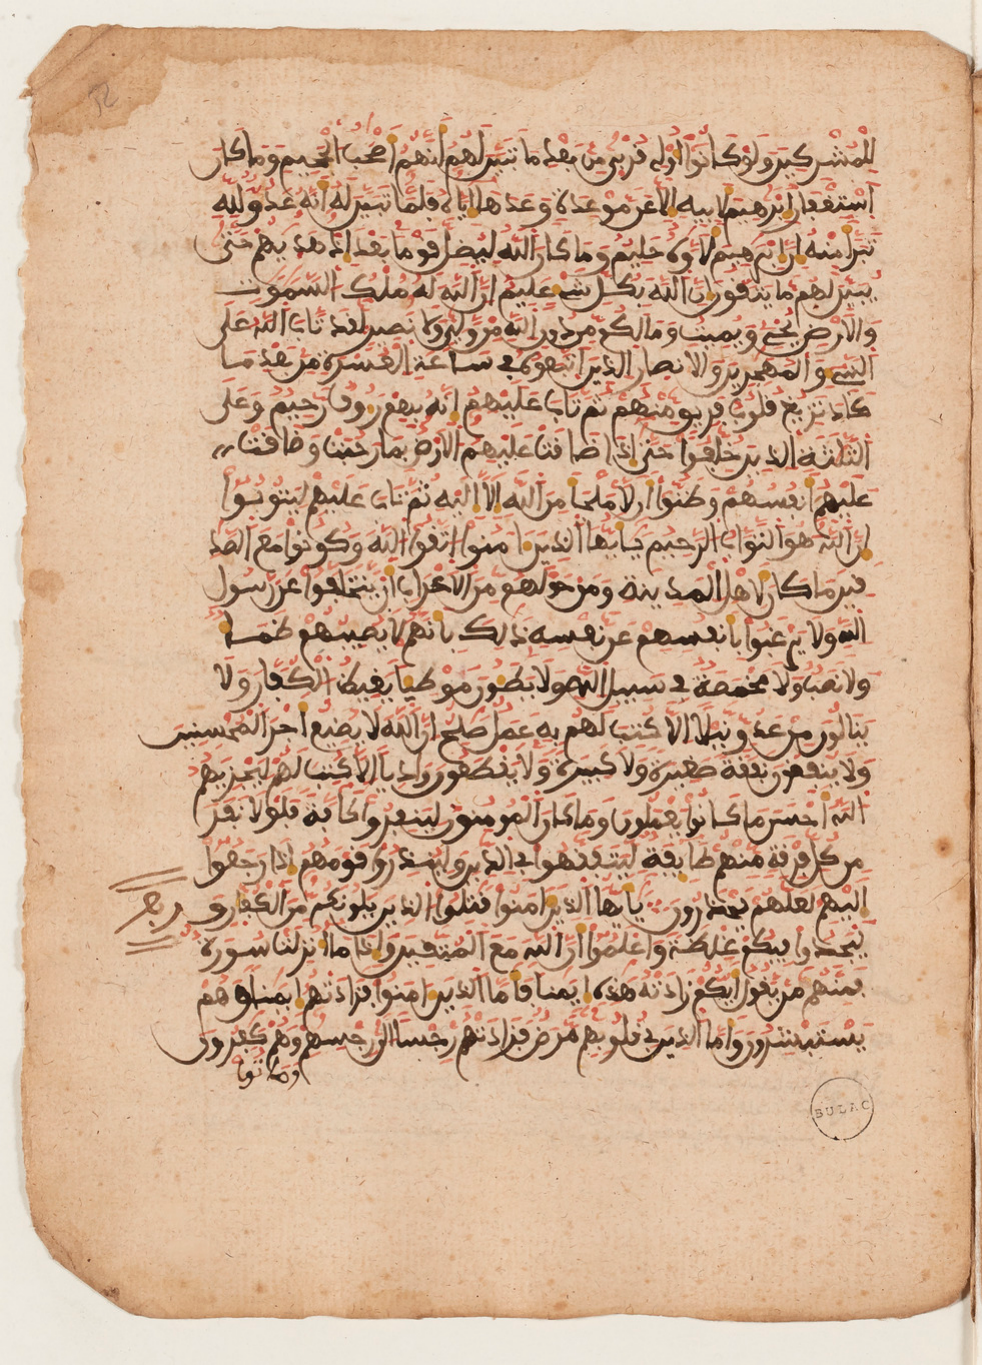 للمشركين ولو كانوا أولي قربى من بعد ما تبين لهم أنهم أصحب الجحيم وما كان
استغفار إبرهيم لأبيه إلا عن موعدة وعدها إياه فلما تبين له أنه عدو لله
تبرأ منه إن إبرهيم لأوه حليم وما كان الله ليضل قوما بعد إذ هديهم حتى
يبين لهم ما يتقون إن الله بكل شيء عليم إن الله له ملك السموت
والأرض يحي ويميت وما لكم من دون الله من ولي ولا نصير لقد تاب الله على
النبي والمهجرين والأنصار الذين اتبعوه في ساعة العسرة من بعد ما
كاد تزيغ قلوب فريق منهم ثم تاب عليهم إنه بهم رءوف رحيم وعلى
الثلثة الذين خلفوا حتى إذا ضاقت عليهم الأرض بما رحبت وضاقت
عليهم أنفسهم وظنوا أن لا ملجأ من الله إلا إليه ثم تاب عليهم ليتوبوا
إن الله هو التواب الرحيم يأيها الذين ءامنوا اتقوا الله وكونوا مع الصد
قين ما كان لأهل المدينة ومن حولهم من الأعراب أن يتخلفوا عن رسول
الله ولا يرغبوا بأنفسهم عن نفسه ذلك بأنهم لا يصيبهم ظمأ
ولا نصب ولا مخمصة في سبيل الله ولا يطون موطيا يغيظ الكفار ولا
ينالون من عدو نيلا إلا كتب لهم به عمل صلح إن الله لا يضيع أجر المحسنين
ولا ينفقون نفقة صغيرة ولا كبيرة ولا يقطعون واديا إلا كتب لهم ليجزيهم
الله أحسن ما كانوا يعملون وما كان المومنون لينفروا كافة فلولا نفر
من كل فرقة منهم طايفة ليتفقهوا في الدين ولينذروا قومهم إذا رجعوا
إليهم لعلهم يحذرون يأيها الذين ءامنوا قتلوا الذين يلونكم من الكفار و
ليجدوا فيكم غلظة واعلموا أن الله مع المتقين وإذا ما أنزلت سورة
فمنهم من يقول أيكم زادته هذه إيمنا فأما الذين ءامنوا فزادتهم إيمنا وهم
يستبشرون وأما الذين في قلوبهم مرض فزادتهم رجسا إلى رجسهم وهم كفرون
وماتوا
BULAC